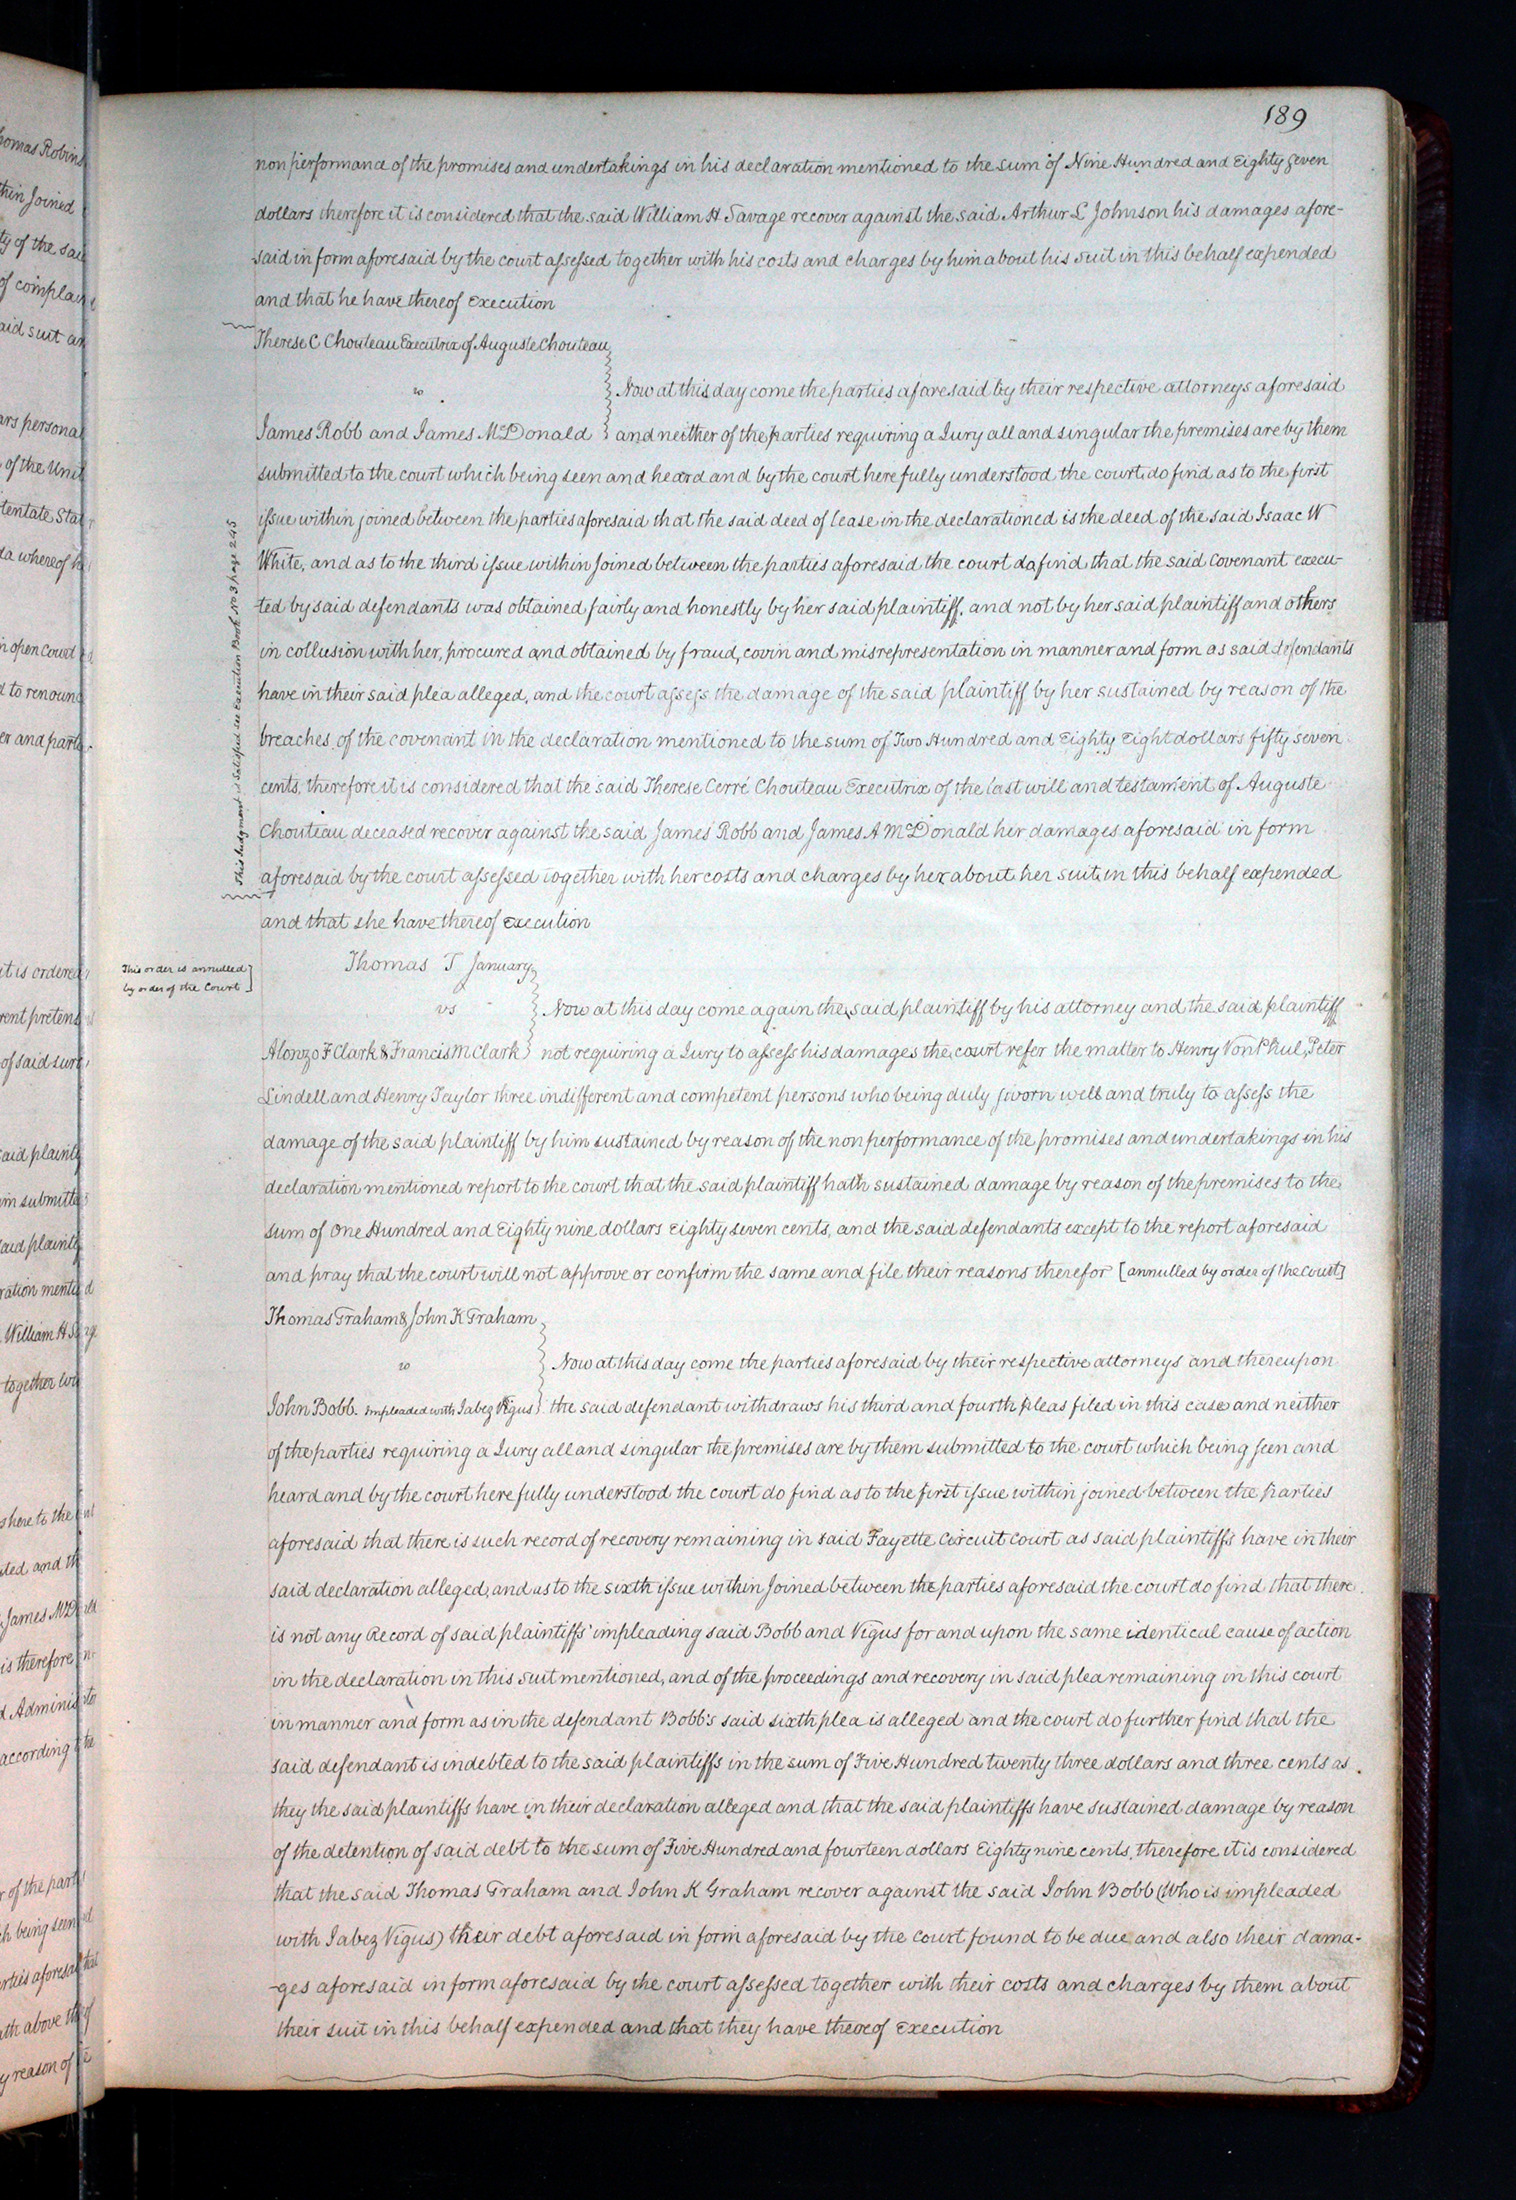 189
non performance of the promises and undertakings in his declaration mentioned to the sum of Nine Hundred and Eighty seven
dollars therefore it is considered that the said William H Savage recover against the said Arthur L Johnson his damages afore-
said in form aforesaid by the court assessed together with his costs and charges by him about his suit in this behalf expended
and that he have thereof Execution
Therese C Chouteau Executrix of Auguste Chouteau
vs
Now at this day come the parties aforesaid by their respective attorneys aforesaid
James Robb and James McDonald and neither of the parties requiring a Jury all and singular the premises are by them
submitted to the court which being seen and heard and by the court here fully understood the court do find as to the first
issue within joined between the parties aforesaid that the said deed of lease in the declarationed is the deed of the said Isaac W
White, and as to the third issue within joined between the parties aforesaid the court do find that the said covenant execu-
ted by said defendants was obtained fairly and honestly by her said plaintiff, and not by her said plaintiff and others
in collusion with her, procured and obtained by fraud, covin and misrepresentation in manner and form as said defendants
have in their said plea alleged, and the court assess the damage of the said plaintiff by her sustained by reason of the
breaches of the covenant in the declaration mentioned to the sum of Two Hundred and Eighty Eight dollars fifty seven
cents, therefore it is considered that the said Therese Cerré Chouteau Executrix of the last will and testament of Auguste
Chouteau deceased recover against the said James Robb and James A McDonald her damages aforesaid in form
aforesaid by the court assessed together with her costs and charges by her about her suit in this behalf expended
and that she have thereof Execution
This Judgment is Satisfied see Execution Book No 3 page 245
Thomas T January
This order is annulled
by order of the Court
vs
Now at this day come again the said plaintiff by his attorney and the said plaintiff
Alonzo F Clark & Francis M Clark not requiring a Jury to assess his damages the court refer the matter to Henry Von Phul, Peter
Lindell and Henry Taylor three indifferent and competent persons who being duly sworn well and truly to assess the
damage of the said plaintiff by him sustained by reason of the non performance of the promises and undertakings in his
declaration mentioned report to the court that the said plaintiff hath sustained damage by reason of the premises to the
sum of One Hundred and Eighty nine dollars Eighty seven cents, and the said defendants except to the report aforesaid
and pray that the court will not approve or confirm the same and file their reasons therefor [annulled by order of the Court]
Thomas Graham & John K Graham
vs
Now at this day come the parties aforesaid by their respective attorneys and thereupon
John Bobb. impleaded with Jabez Vigus the said defendant withdraws his third and fourth pleas filed in this case and neither
of the parties requiring a Jury all and singular the premises are by them submitted to the court which being seen and
heard and by the court here fully understood the court do find as to the first issue within joined between the Parties
aforesaid that there is such record of recovery remaining in said Fayette Circuit Court as said plaintiffs have in their
said declaration alleged, and as to the sixth issue within joined between the parties aforesaid the court do find that there
is not any Record of said plaintiffs' impleading said Bobb and Vigus for and upon the same identical cause of action
in the declaration in this suit mentioned, and of the proceedings and recovery in said plea remaining in this court
in manner and form as in the defendant Bobb's said sixth plea is alleged and the court do further find that the
said defendant is indebted to the said plaintiffs in the sum of Five Hundred twenty three dollars and three cents as
they the said plaintiffs have in their declaration alleged and that the said plaintiffs have sustained damage by reason
of the detention of said debt to the sum of Five Hundred and fourteen dollars Eighty nine cents, therefore it is considered
that the said Thomas Graham and John K Graham recover against the said John Bobb (Who is impleaded
with Jabez Vigus) their debt aforesaid in form aforesaid by the court found to be due and also their dama-
-ges aforesaid in form aforesaid by the court assessed together with their costs and charges by them about
their suit in this behalf expended and that they have thereof Execution